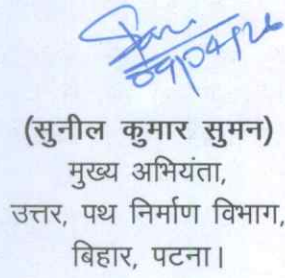 09/04/26
(सुनील कुमार सुमन)
मुख्य अभियंता,
उत्तर, पथ निर्माण विभाग,
बिहार, पटना।